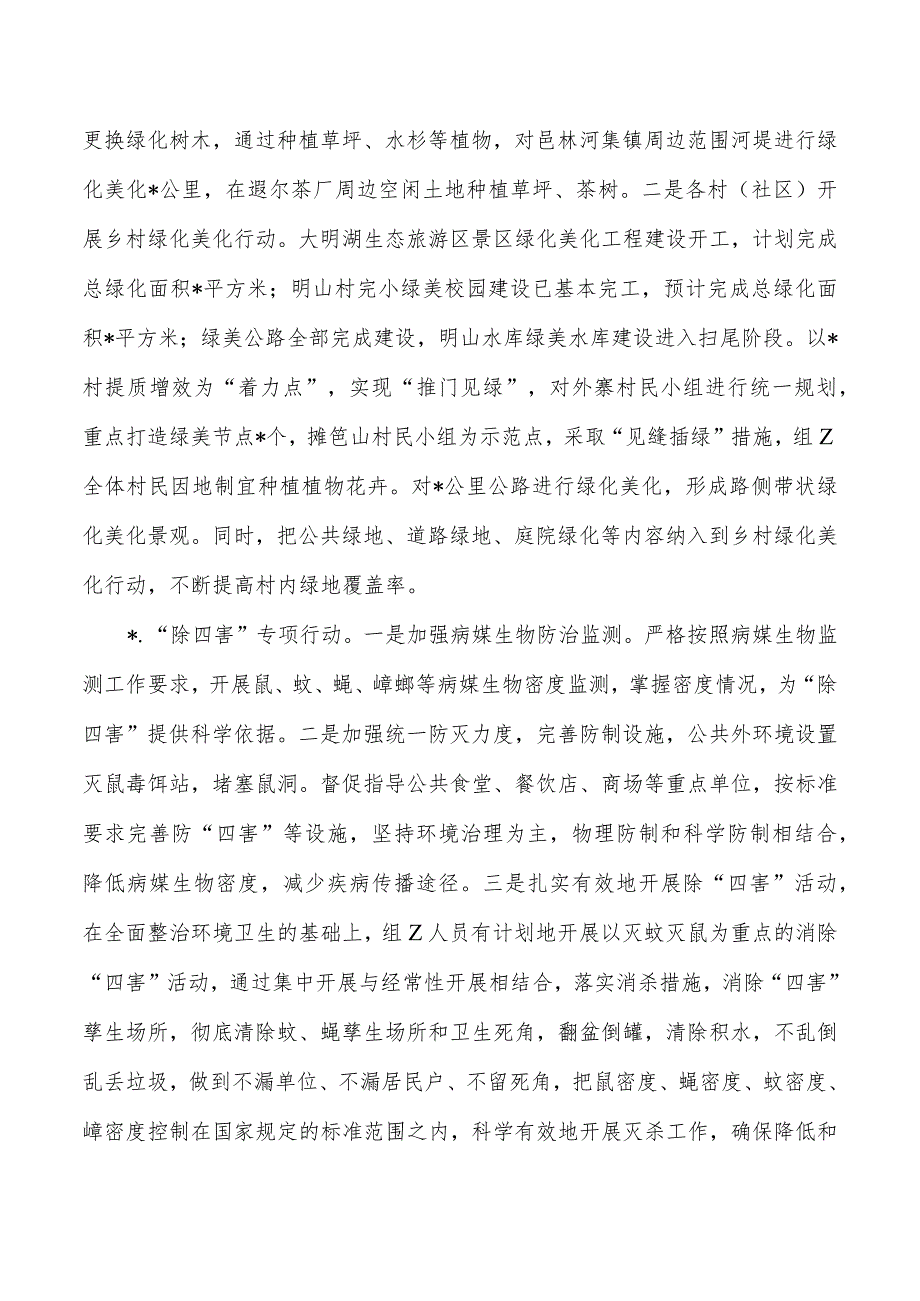 更换绿化树木，通过种植草坪、水杉等植物，对邑林河集镇周边范围河堤进行绿
化美化*公里，在遐尔茶厂周边空闲土地种植草坪、茶树。二是各村（社区）开
展乡村绿化美化行动。大明湖生态旅游区景区绿化美化工程建设开工，计划完成
总绿化面积*平方米；明山村完小绿美校园建设已基本完工，预计完成总绿化面
积*平方米；绿美公路全部完成建设，明山水库绿美水库建设进入扫尾阶段。以*
村提质增效为“着力点”，实现“推门见绿”，对外寨村民小组进行统一规划，
重点打造绿美节点*个，摊笆山村民小组为示范点，采取“见缝插绿”措施，组Z
全体村民因地制宜种植植物花卉。对*公里公路进行绿化美化，形成路侧带状绿
化美化景观。同时，把公共绿地、道路绿地、庭院绿化等内容纳入到乡村绿化美
化行动，不断提高村内绿地覆盖率。
*.“除四害”专项行动。一是加强病媒生物防治监测。严格按照病媒生物监
测工作要求，开展鼠、蚊、蝇、嶂螂等病媒生物密度监测，掌握密度情况，为“除
四害”提供科学依据。二是加强统一防灭力度，完善防制设施，公共外环境设置
灭鼠毒饵站，堵塞鼠洞。督促指导公共食堂、餐饮店、商场等重点单位，按标准
要求完善防“四害”等设施，坚持环境治理为主，物理防制和科学防制相结合，
降低病媒生物密度，减少疾病传播途径。三是扎实有效地开展除“四害”活动，
在全面整治环境卫生的基础上，组Z人员有计划地开展以灭蚊灭鼠为重点的消除
“四害”活动，通过集中开展与经常性开展相结合，落实消杀措施，消除“四害”
孽生场所，彻底清除蚊、蝇孽生场所和卫生死角，翻盆倒罐，清除积水，不乱倒
乱丢垃圾，做到不漏单位、不漏居民户、不留死角，把鼠密度、蝇密度、蚊密度、
嶂密度控制在国家规定的标准范围之内，科学有效地开展灭杀工作，确保降低和